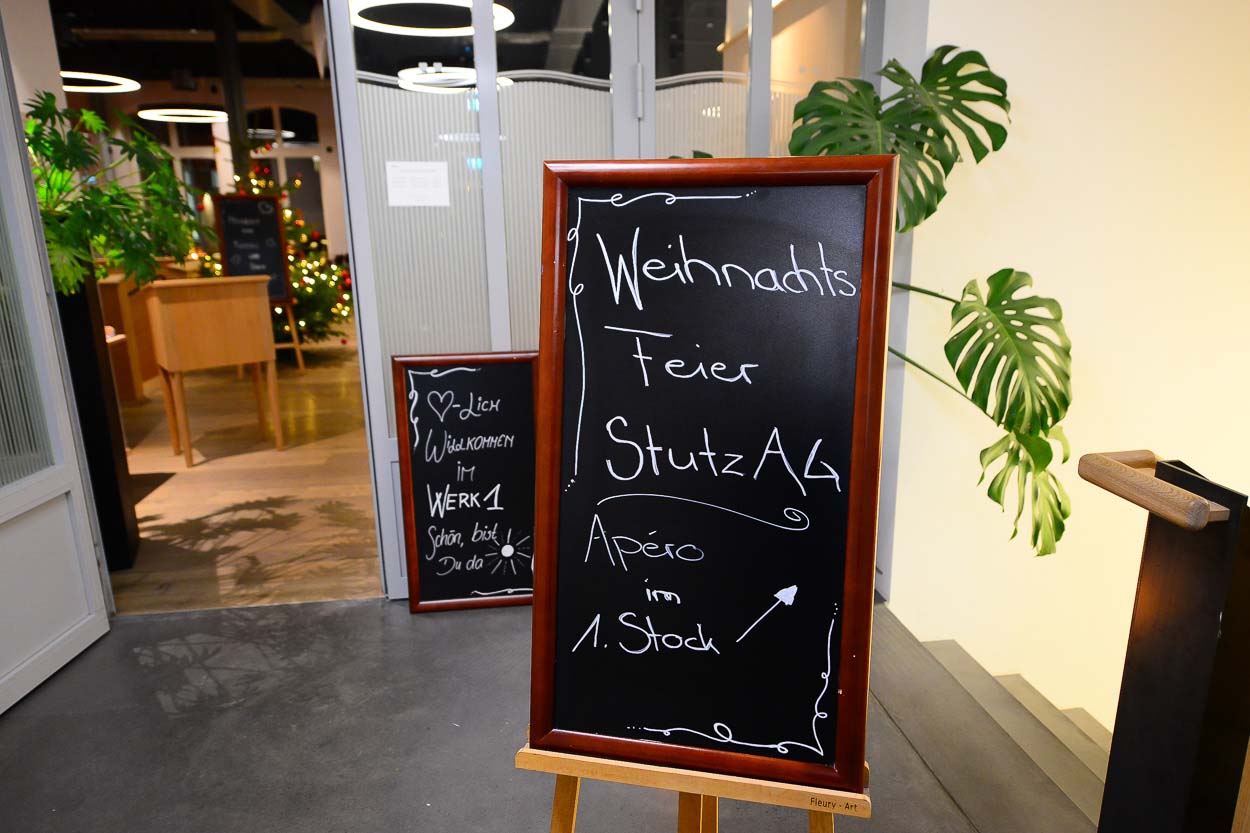 Weihnachts
Feier
Stutz AG
Apéro
im
1. Stock
♡-Lich
Willkommen
im
WERK 1
Schön, bist
Du da
Fleury - Art